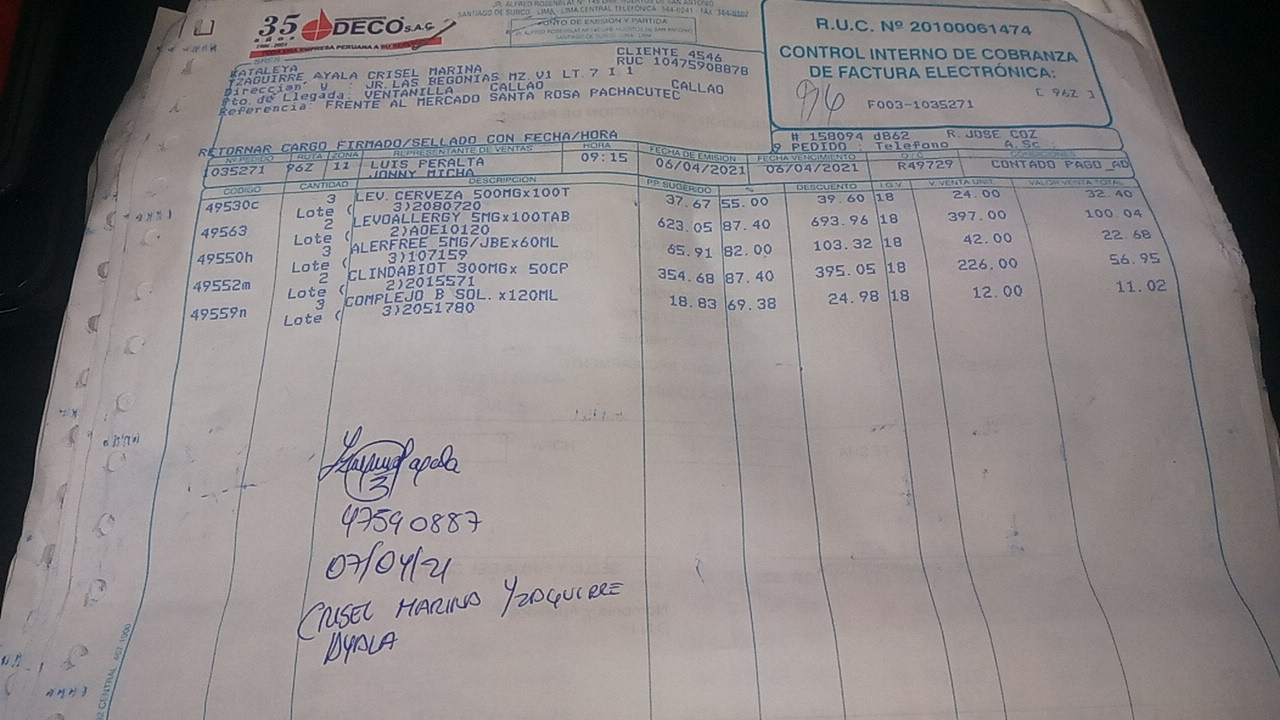 35 DECO S.A.C
años
1986-2021
UNA EMPRESA PERUANA A SU SERVICIO
JR. ALFRED ROSENBLAT Nº 145 URB. HUERTOS DE SAN ANTONIO
SANTIAGO DE SURCO, LIMA, LIMA CENTRAL TELEFÓNICA: 344-0241
PUNTO DE EMISIÓN Y PARTIDA
JR. ALFRED ROSENBLAT Nº 145 URB. HUERTOS DE SAN ANTONIO
SANTIAGO DE SURCO - LIMA - LIMA
R.U.C. Nº 20100061474
CONTROL INTERNO DE COBRANZA
DE FACTURA ELECTRÓNICA:
[ 96Z ]
96 F003-1035271
SRES
KATALEYA CLIENTE 4546
YZAGUIRRE AYALA CRISEL MARINA RUC 10475908878
Direccian y : JR.LAS BEGONIAS MZ.V1 LT.7 I 1
Pto.de Llegada: VENTANILLA CALLAO CALLAO
Referencia: FRENTE AL MERCADO SANTA ROSA PACHACUTEC
# 158094 d862 R.JOSE COZ
PEDIDO : Telefono A.Sc
RETORNAR CARGO FIRMADO/SELLADO CON FECHA/HORA
Nº PEDIDO RUTA ZONA REPRESENTANTE DE VENTAS HORA FECHA DE EMISION FECHA VENCIMIENTO O/C CONDICIONES
1035271 96Z 11 LUIS PERALTA 09:15 06/04/2021 06/04/2021 R49729 CONTADO PAGO_AD
JONNY MICHA
CODIGO CANTIDAD DESCRIPCION PP. SUGERIDO % DESCUENTO I.G.V V. VENTA UNIT. VALOR VENTA TOTAL
49530c 3 LEV.CERVEZA 500MGx100T 37.67 55.00 39.60 18 24.00 32.40
Lote ( 3)2080720
49563 2 LEVOALLERGY 5MGx100TAB 623.05 87.40 693.96 18 397.00 100.04
Lote ( 2)A0E10120
49550h 3 ALERFREE 5MG/JBEx60ML 65.91 82.00 103.32 18 42.00 22.68
Lote ( 3)107159
49552m 2 CLINDABIOT 300MGx 50CP 354.68 87.40 395.05 18 226.00 56.95
Lote ( 2)2015571
49559n 3 COMPLEJO B SOL.x120ML 18.83 69.38 24.98 18 12.00 11.02
Lote ( 3)2051780
47590887
07/04/21
CRISEL MARINA YZAGUIRRE
AYALA